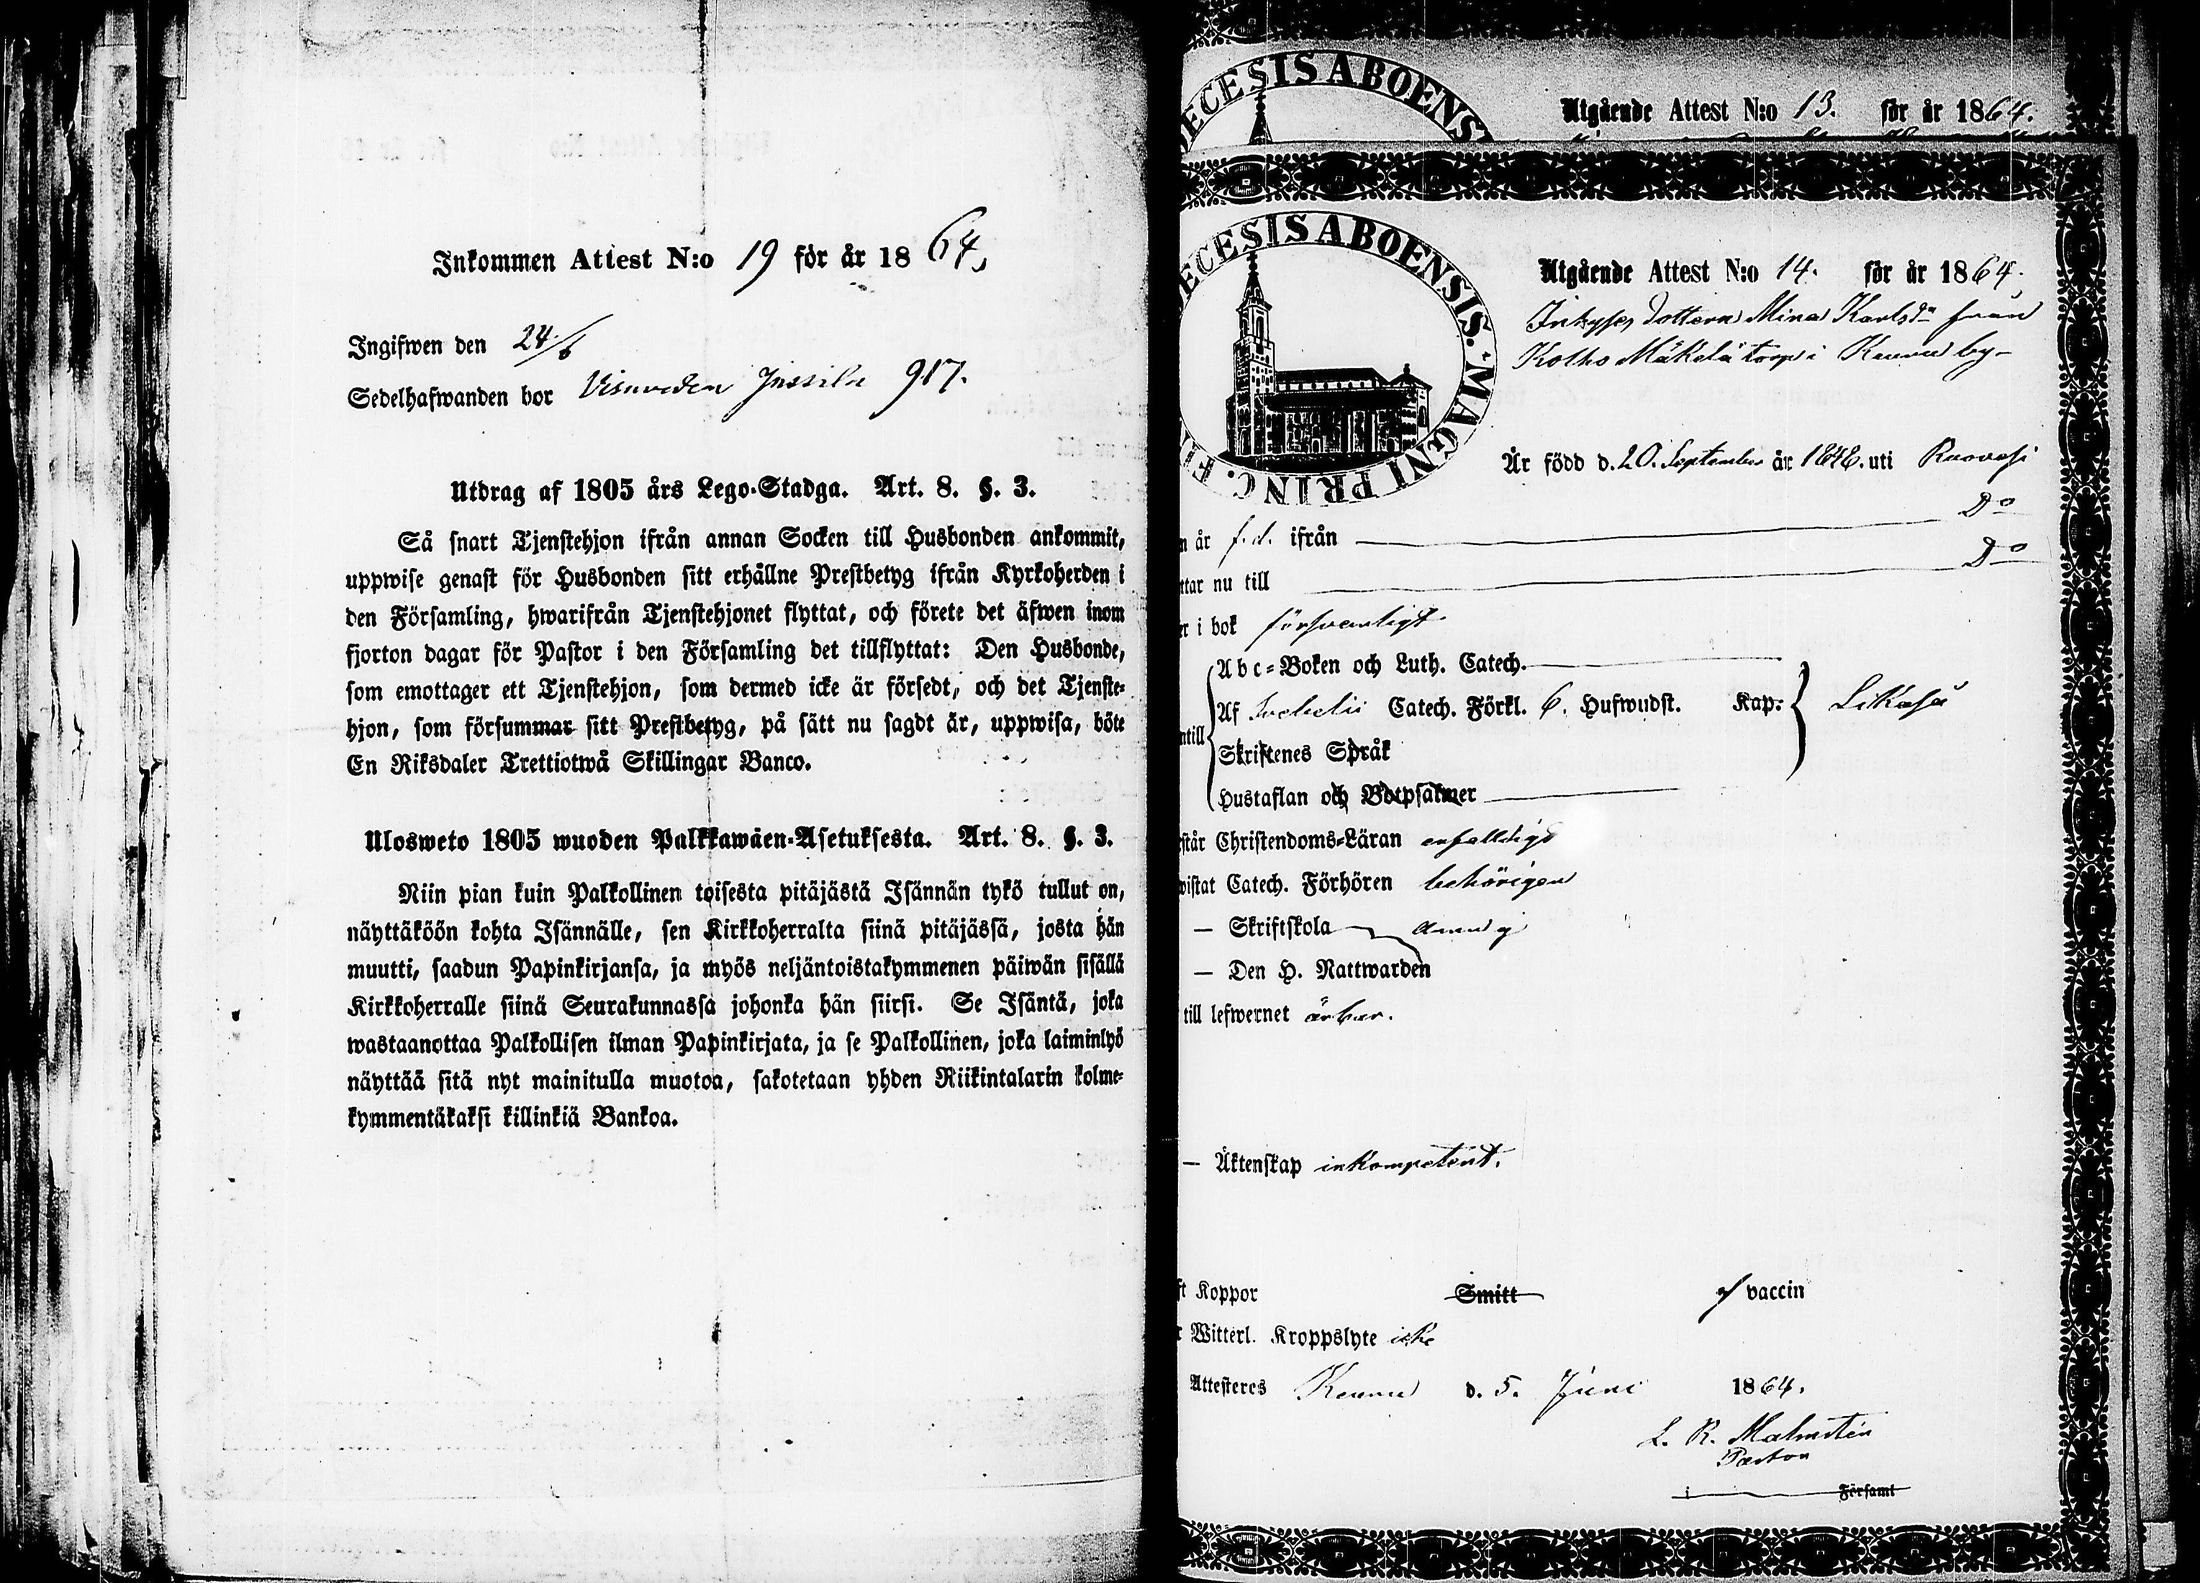 Inkommen Attest N:o 19 för år 1864,
Ingifwen den 24/6
Sedelhafwanden bor Visuveden Jussila 917.
Utdrag af 1805 års Lego-Stadga. Art. 8. §. 3.
Så snart Tjenstehjon ifrån annan Socken till Husbonden ankommit,
uppwise genast för Husbonden sitt erhållne Prestbetyg ifrån Kyrkoherden i
den Församling, hwarifrån Tjenstehjonet flyttat, och förete det äfwen inom
fjorton dagar för Pastor i den Församling det tillflyttat: Den Husbonde,
som emottager ett Tjenstehjon, som dermed icke är försedt, och det Tjenste-
hjon, som försummar sitt Prestbetyg, på sätt nu sagdt är, uppwisa, böte
En Riksdaler Trettiotwå Skillingar Banco.
Ulosweto 1805 wuoden Palkkawäen-Asetuksesta. Art. 8. §. 3.
Niin pian kuin Palkollinen toisesta pitäjästä Isännän tykö tullut on,
näyttäköön kohta Isännälle, sen Kirkkoherralta siinä pitäjässä, josta hän
muutti, saadun Papinkirjansa, ja myös neljäntoistakymmenen päiwän sisällä
Kirkkoherralle siinä Seurakunnassa johonka hän siirsi. Se Isäntä, joka
wastaanottaa Palkollisen ilman Papinkirjata, ja se Palkollinen, joka laiminlyö
näyttää sitä nyt mainitulla muotoa, sakotetaan yhden Riikintalarin kolme-
kymmentäkaksi killinkiä Bankoa.
DECESIS ABOENS
Utgående Attest N:o 13. för år 1864.
DECESIS ABOENSIS. MAGNI PRINC. F
Utgående Attest N:o 14. för år 1864.
Inhyses dottern Mina Karlsdr från
Kolho Mäkelä torp i Keuru by-
År född d. 20. September år 1846. uti Ruovesi
n år f.d. ifrån Do
ttar nu till Do
er i bok försvarligt
Abc-Boken och Luth. Catech.
ntill Af Svebelii Catech. Förkl. 6. Hufwudst. Kap: Likaså
Skriftenes Språk
Hustaflan och Botpsalmer
rstår Christendoms-Läran enfaldigt
wistat Catech. Förhören behörigen
— Skriftskola ännu ej
— Den H. Nattwarden
till lefwernet ärbar.
— Äktenskap inkompetent.
ft Koppor Smitt af vaccin
r Witterl. Kroppslyte icke
Attesteres Keuru d. 5. Juni 1864.
L. R. Malmstén
Pastor
i Församl